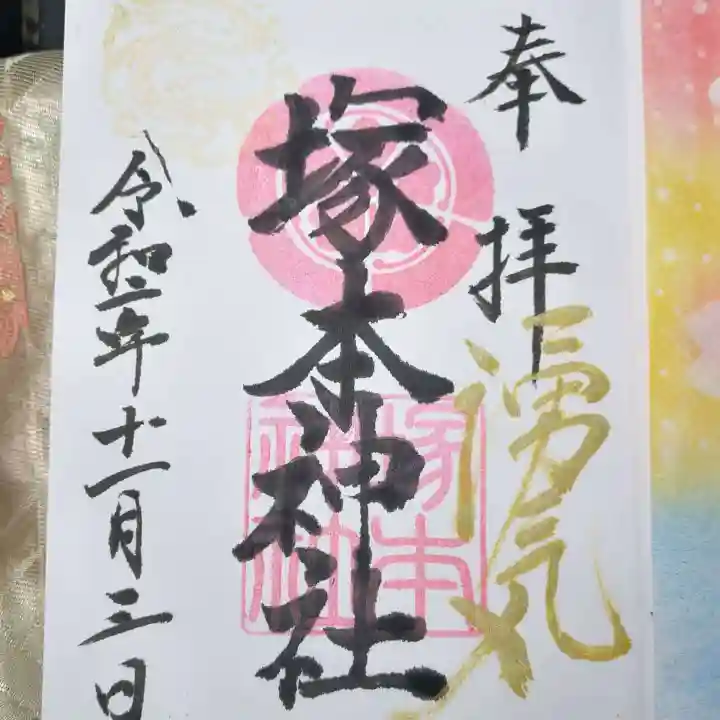 奉拝
湧気
塚本神社
塚本
神社
令和二年十一月三日